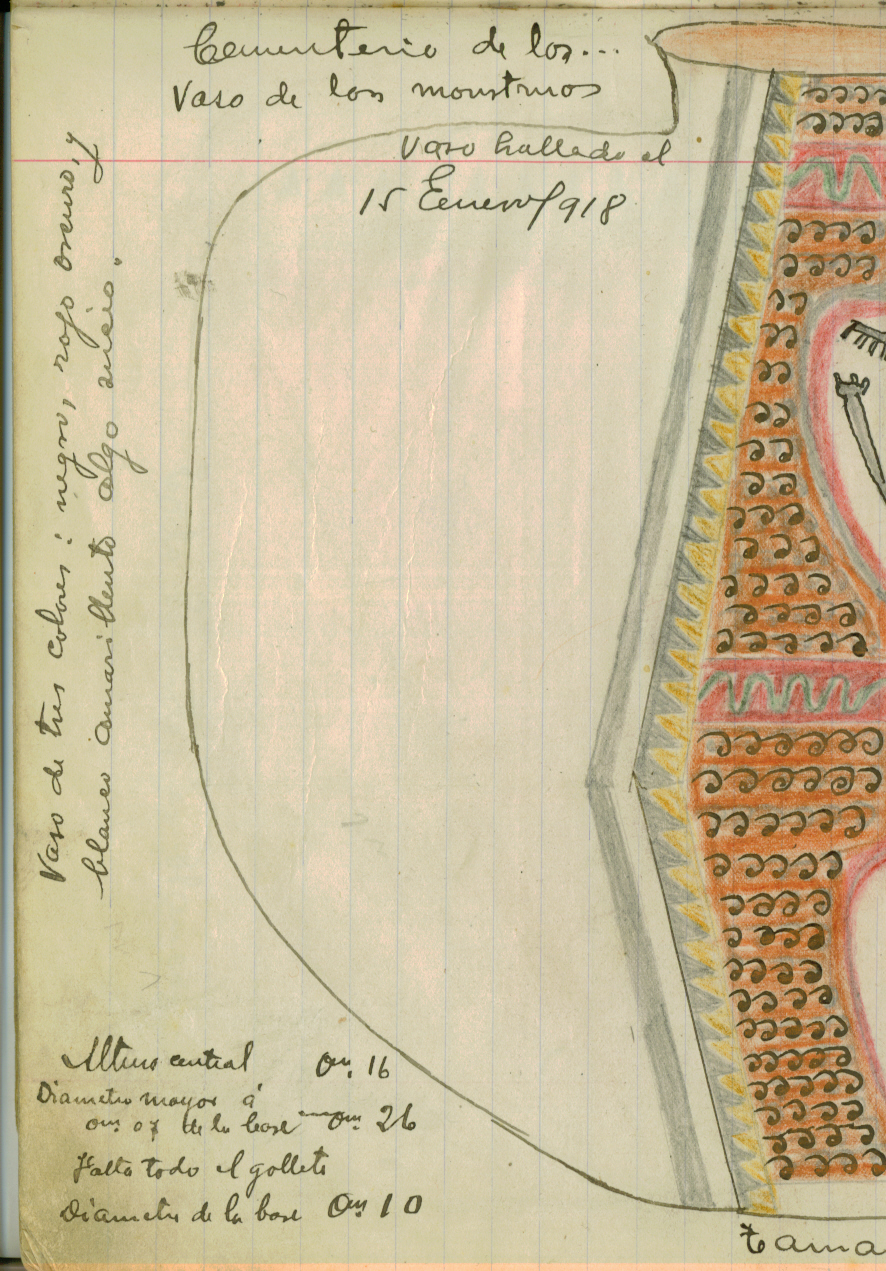 Cementerio de los...
Vaso de los monstruos
Vaso hallado el
15 Enero/918
Vaso de tres colores: negro, rojo oscuro, y
blanco amarillento algo sucio.
Altura central 0m. 16
Diametro mayor á
0m. 07 de la base 0m. 26
Falta todo el gollete
Diametro de la base 0m 10
Tama